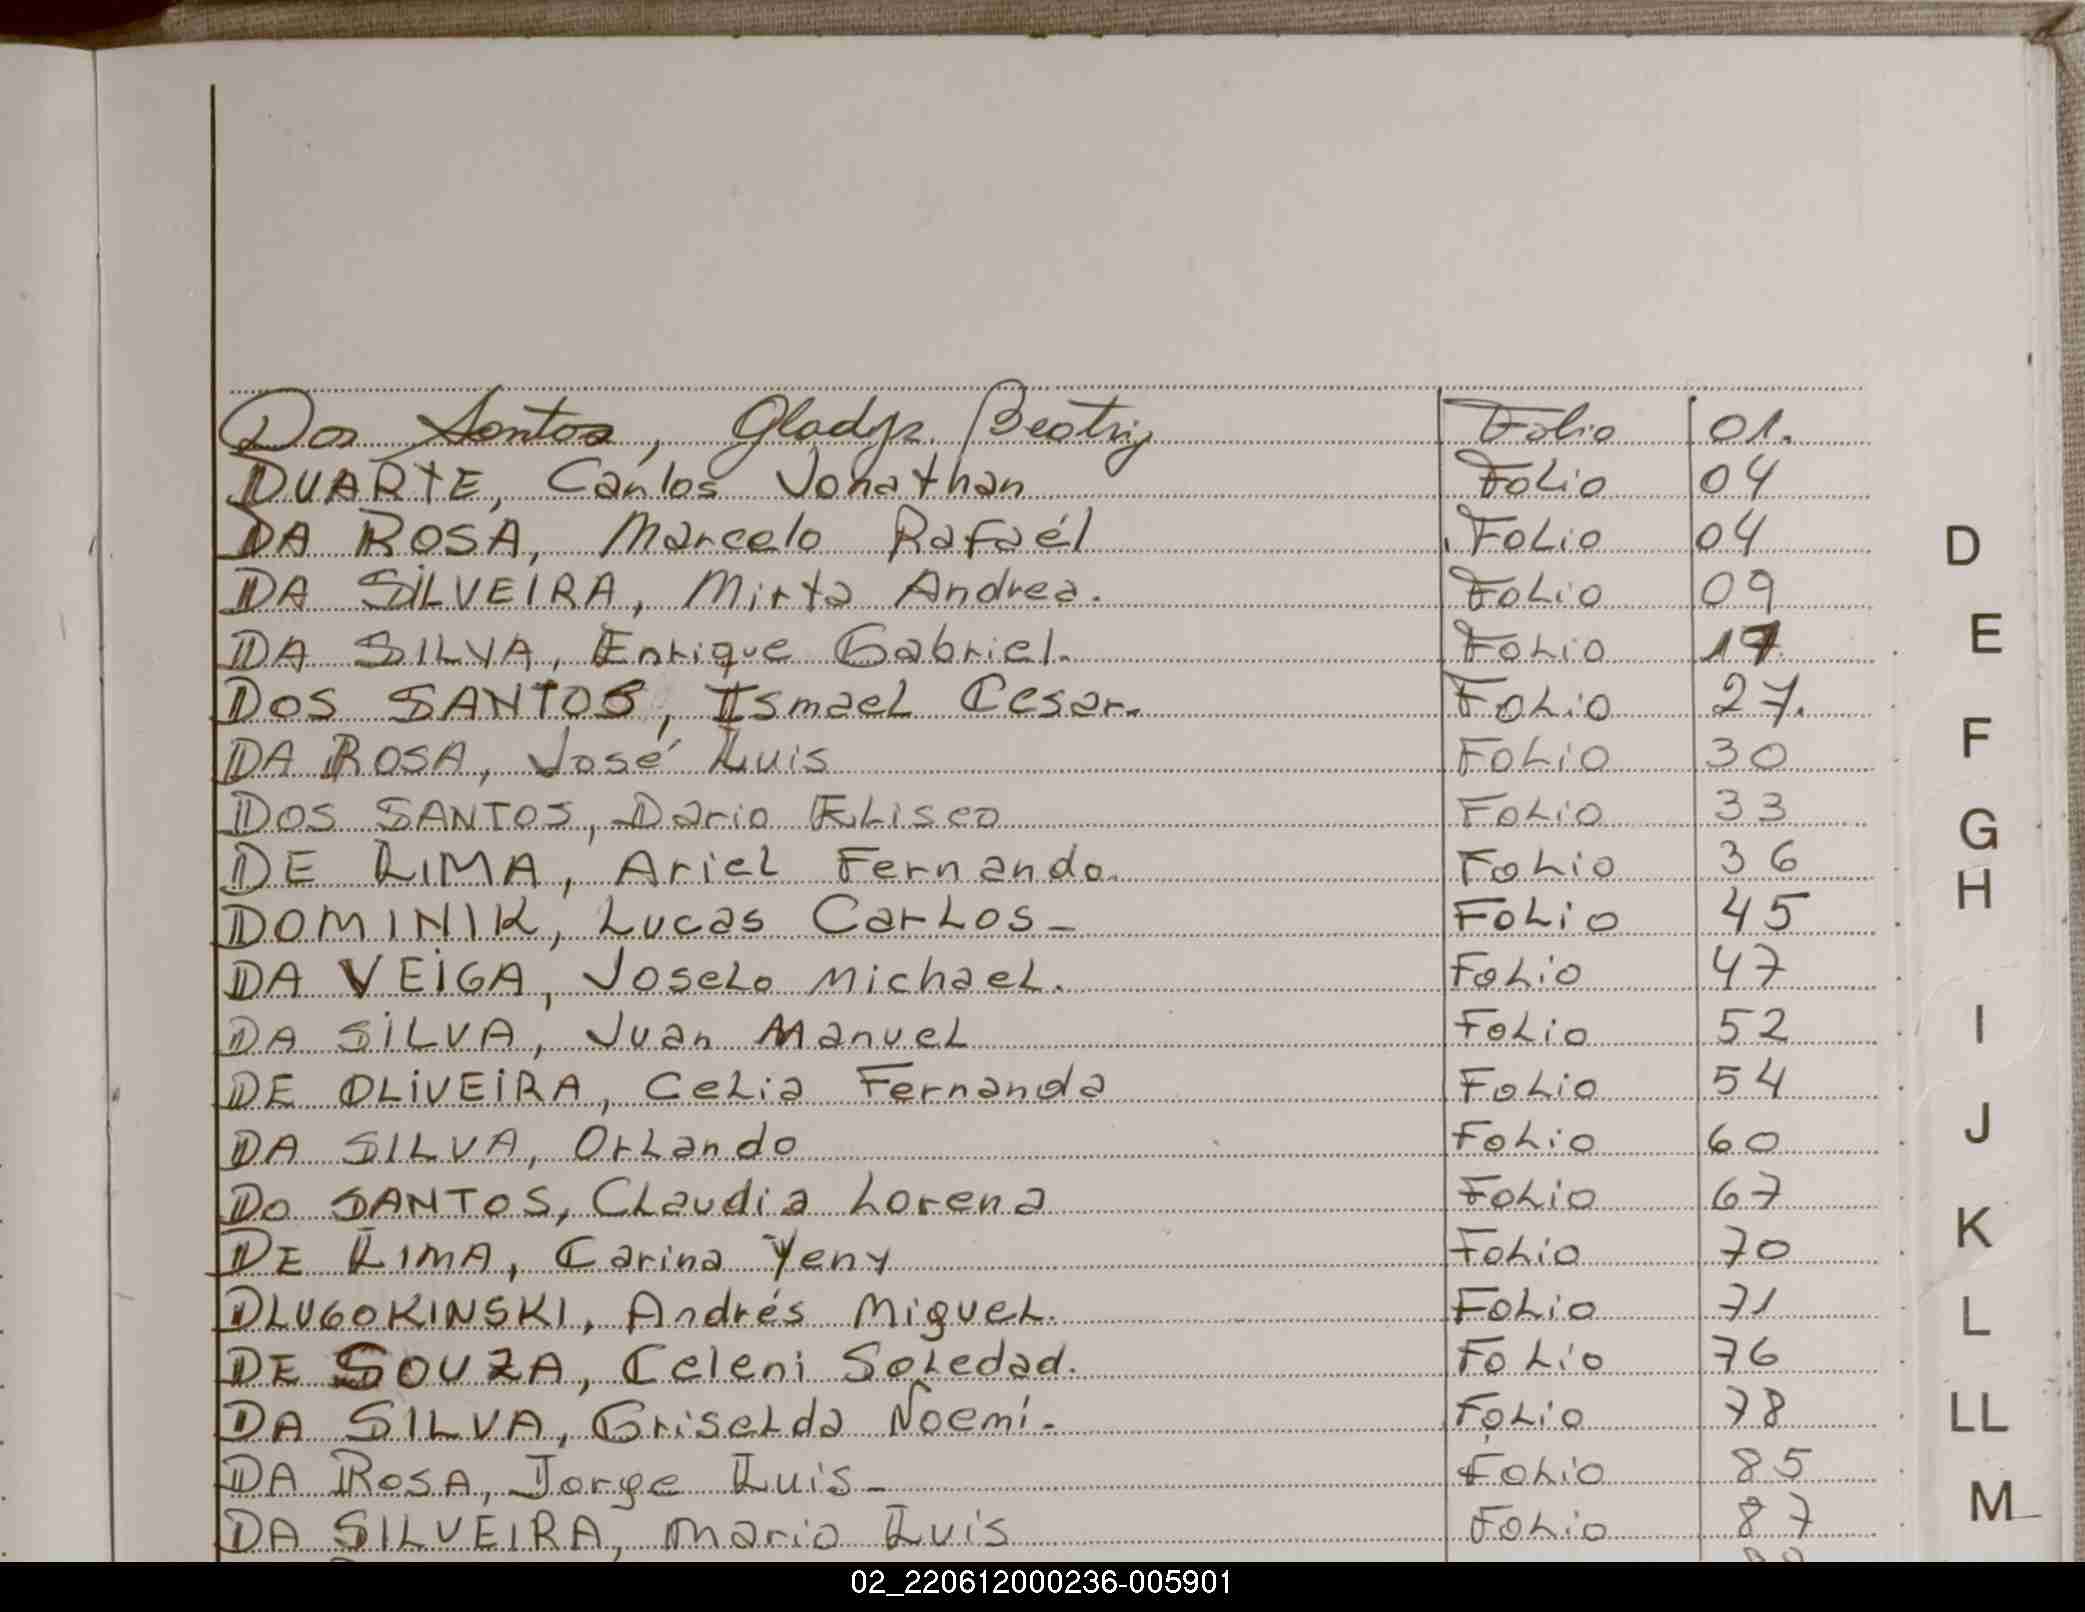 Dos Santos, Gladys Beatriz Folio 01.
DUARTE, Carlos Jonathan Folio 04
DA ROSA, Marcelo Rafaél Folio 04
DA SILVEIRA, Mirta Andrea. Folio 09
DA SILVA, Enrique Gabriel. Folio 17
DOS SANTOS, Ismael Cesar. Folio 27.
DA ROSA, José Luis Folio 30
DOS SANTOS, Dario Eliseo Folio 33
DE LIMA, Ariel Fernando. Folio 36
DOMINIK, Lucas Carlos- Folio 45
DA VEIGA, Joselo Michael. Folio 47
DA SILVA, Juan Manuel Folio 52
DE OLIVEIRA, Celia Fernanda Folio 54
DA SILVA, Orlando Folio 60
Do SANTOS, Claudia Lorena Folio 67
DE LIMA, Carina Yeny Folio 70
DLUGOKINSKI, Andrés Miguel. Folio 71
DE SOUZA, Celeni Soledad. Folio 76
DA SILVA, Griselda Noemí. Folio 78
DA ROSA, Jorge Luis- Folio 85
DA SILVEIRA, Mario Luis Folio 87
D
E
F
G
H
I
J
K
L
LL
M
02_220612000236-005901